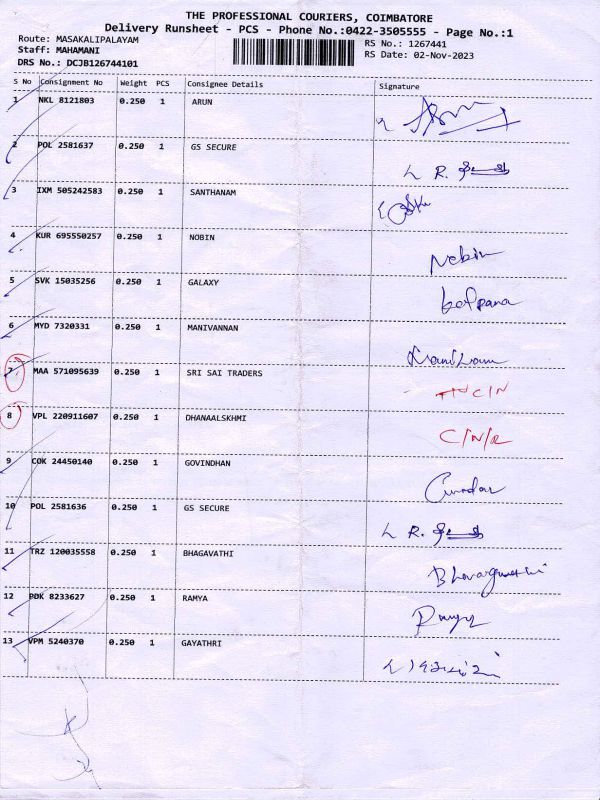 THE PROFESSIONAL COURIERS, COIMBATORE
Delivery Runsheet - PCS - Phone No.:0422-3505555 - Page No.:1
Route: MASAKALIPALAYAM RS No.: 1267441
Staff: MAHAMANI RS Date: 02-Nov-2023
DRS No.: DCJB126744101
S No Consignment No Weight PCS Consignee Details Signature
1 NKL 8121803 0.250 1 ARUN
2 POL 2581637 0.250 1 GS SECURE
3 IXM 505242583 0.250 1 SANTHANAM
4 KUR 695550257 0.250 1 NOBIN Nobin
5 SVK 15035256 0.250 1 GALAXY kalpana
6 MYD 7320331 0.250 1 MANIVANNAN
7 MAA 571095639 0.250 1 SRI SAI TRADERS
8 VPL 220911607 0.250 1 DHANAALSKHMI C/N/R
9 COK 24450140 0.250 1 GOVINDHAN
10 POL 2581636 0.250 1 GS SECURE
11 TRZ 120035558 0.250 1 BHAGAVATHI
12 PDK 8233627 0.250 1 RAMYA Ramya
13 VPM 5240370 0.250 1 GAYATHRI